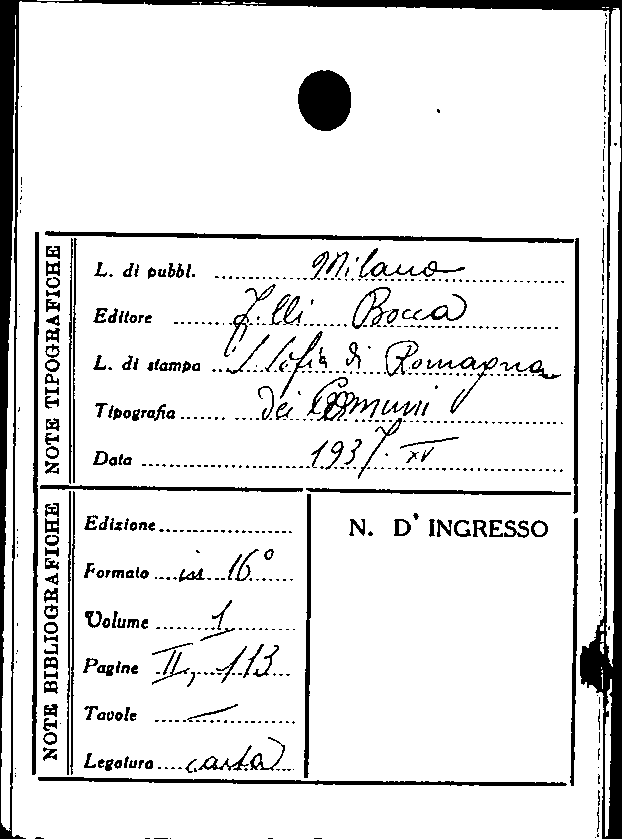 NOTE TIPOGRAFICHE
L. di pubbl. Milano
Editore F.lli Bocca
L. di stampa S. Sofia di Romagna
Tipografia dei Comuni
Data 1937. XV
NOTE BIBLIOGRAFICHE
Edizione
Formato in 16°
Volume 1
Pagine II, 113
Tavole —
Legatura carta
N. D' INGRESSO